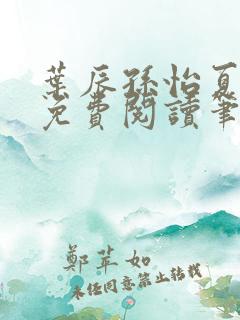 葉辰孫怡夏
免費閱讀筆
鄭苹如
未经同意禁止转载